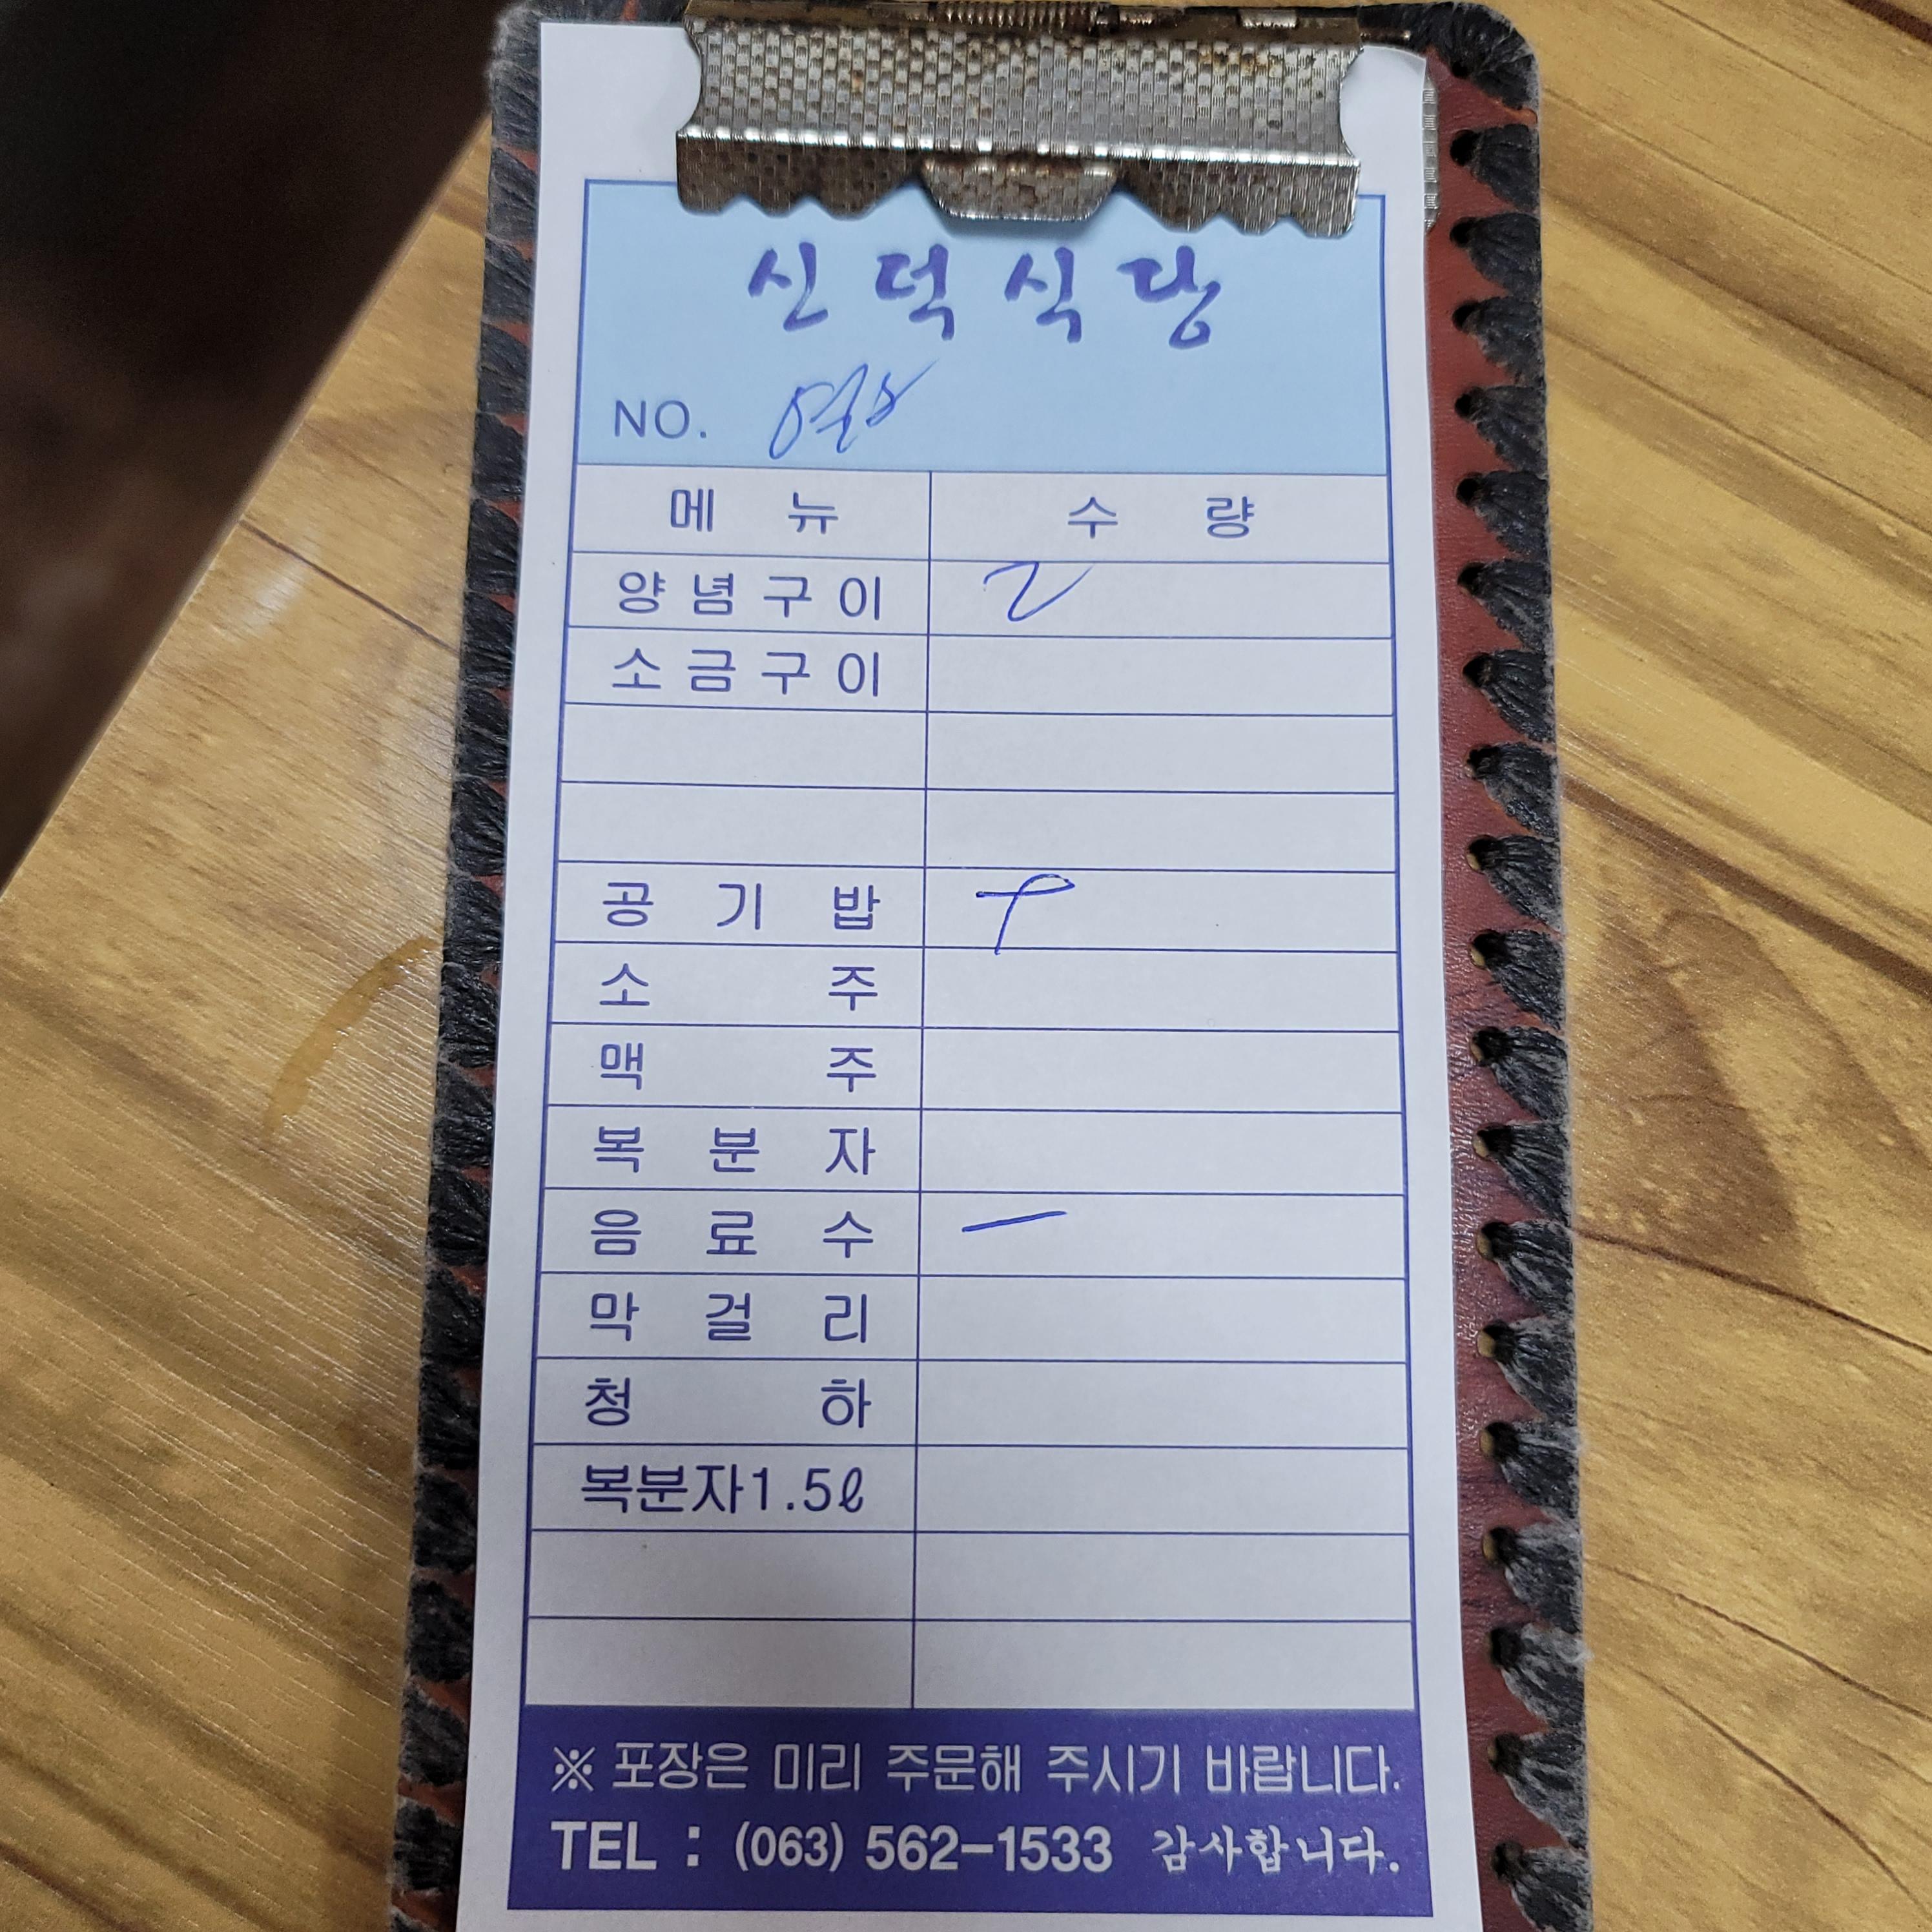 신덕식당
NO.
메뉴 수량
양념구이 2
소금구이
공기밥
소주
맥주
복분자
음료수 一
막걸리
청하
복분자1.5ℓ
※ 포장은 미리 주문해 주시기 바랍니다.
TEL : (063) 562-1533 감사합니다.